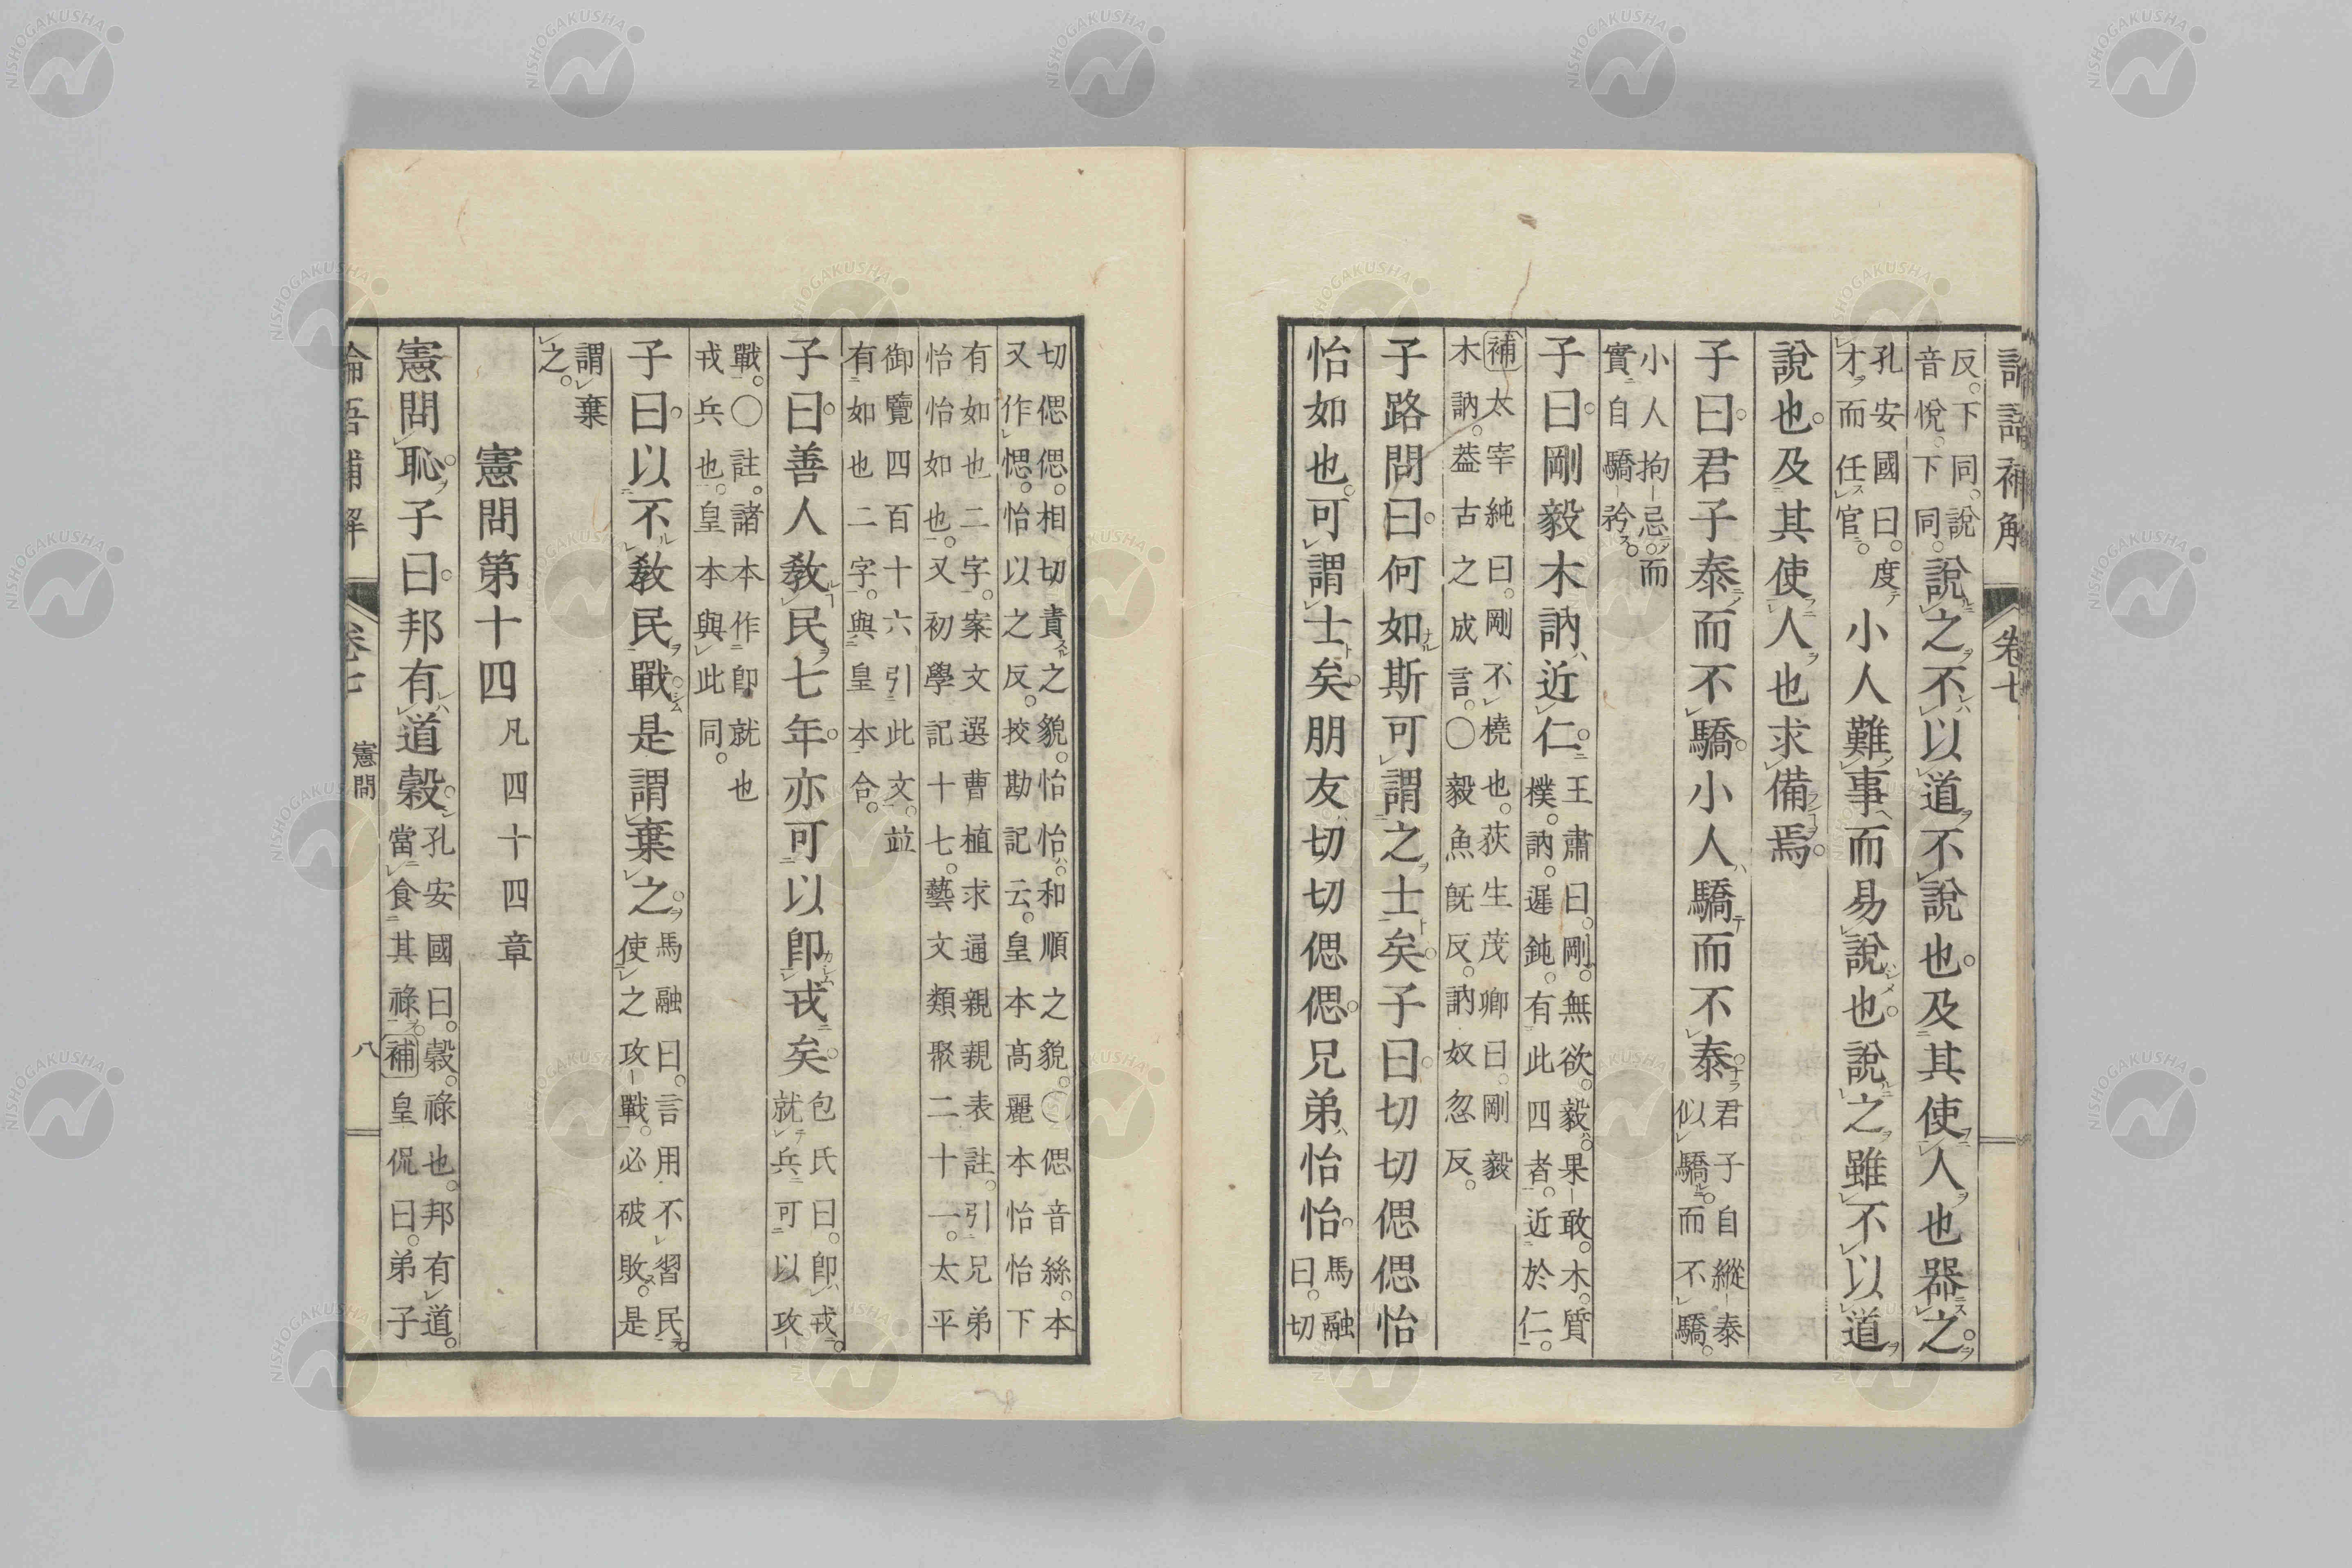 反。下同。說
音悅。下同。
說之不以道不說也及其使人也器之
孔安國曰。度
才而任官。
小人難事而易說也說之雖不以道
說也及其使人也求備焉
子曰君子泰而不驕小人驕而不泰
君子自縱泰
似驕。而不驕。
小人拘忌。而
實自驕矜。
子曰剛毅木訥近仁
王肅曰。剛。無欲。毅。果敢。木。質
樸。訥。遲鈍。有此四者。近於仁。
補太宰純曰。剛不橈也。荻生茂卿曰。剛毅
木訥。葢古之成言。〇毅魚旣反。訥奴忽反。
子路問曰何如斯可謂之士矣子曰切切偲偲怡
怡如也可謂士矣朋友切切偲偲兄弟怡怡
馬融
曰。切
切偲偲。相切責之貌。怡怡。和順之貌。〇偲音絲。本
又作愢。怡以之反。挍勘記云。皇本髙麗本怡怡下
有如也二字。案文選曹植求通親親表註。引兄弟
怡怡如也。又初學記十七。藝文類聚二十一。太平
御覽四百十六引此文。竝
有如也二字。與皇本合。
子曰善人敎民七年亦可以卽戎矣
包氏曰。卽戎。
就兵可以攻
戰。〇註。諸本作卽就也
戎兵也。皇本與此同。
子曰以不敎民戰是謂棄之
馬融曰。言用不習民
使之攻戰。必破敗。是
謂棄
之。
憲問第十四
凡四十四章
憲問恥子曰邦有道穀
孔安國曰。穀。祿也。邦有道。
當食其祿。補皇侃曰。弟子
卷七
憲問
八